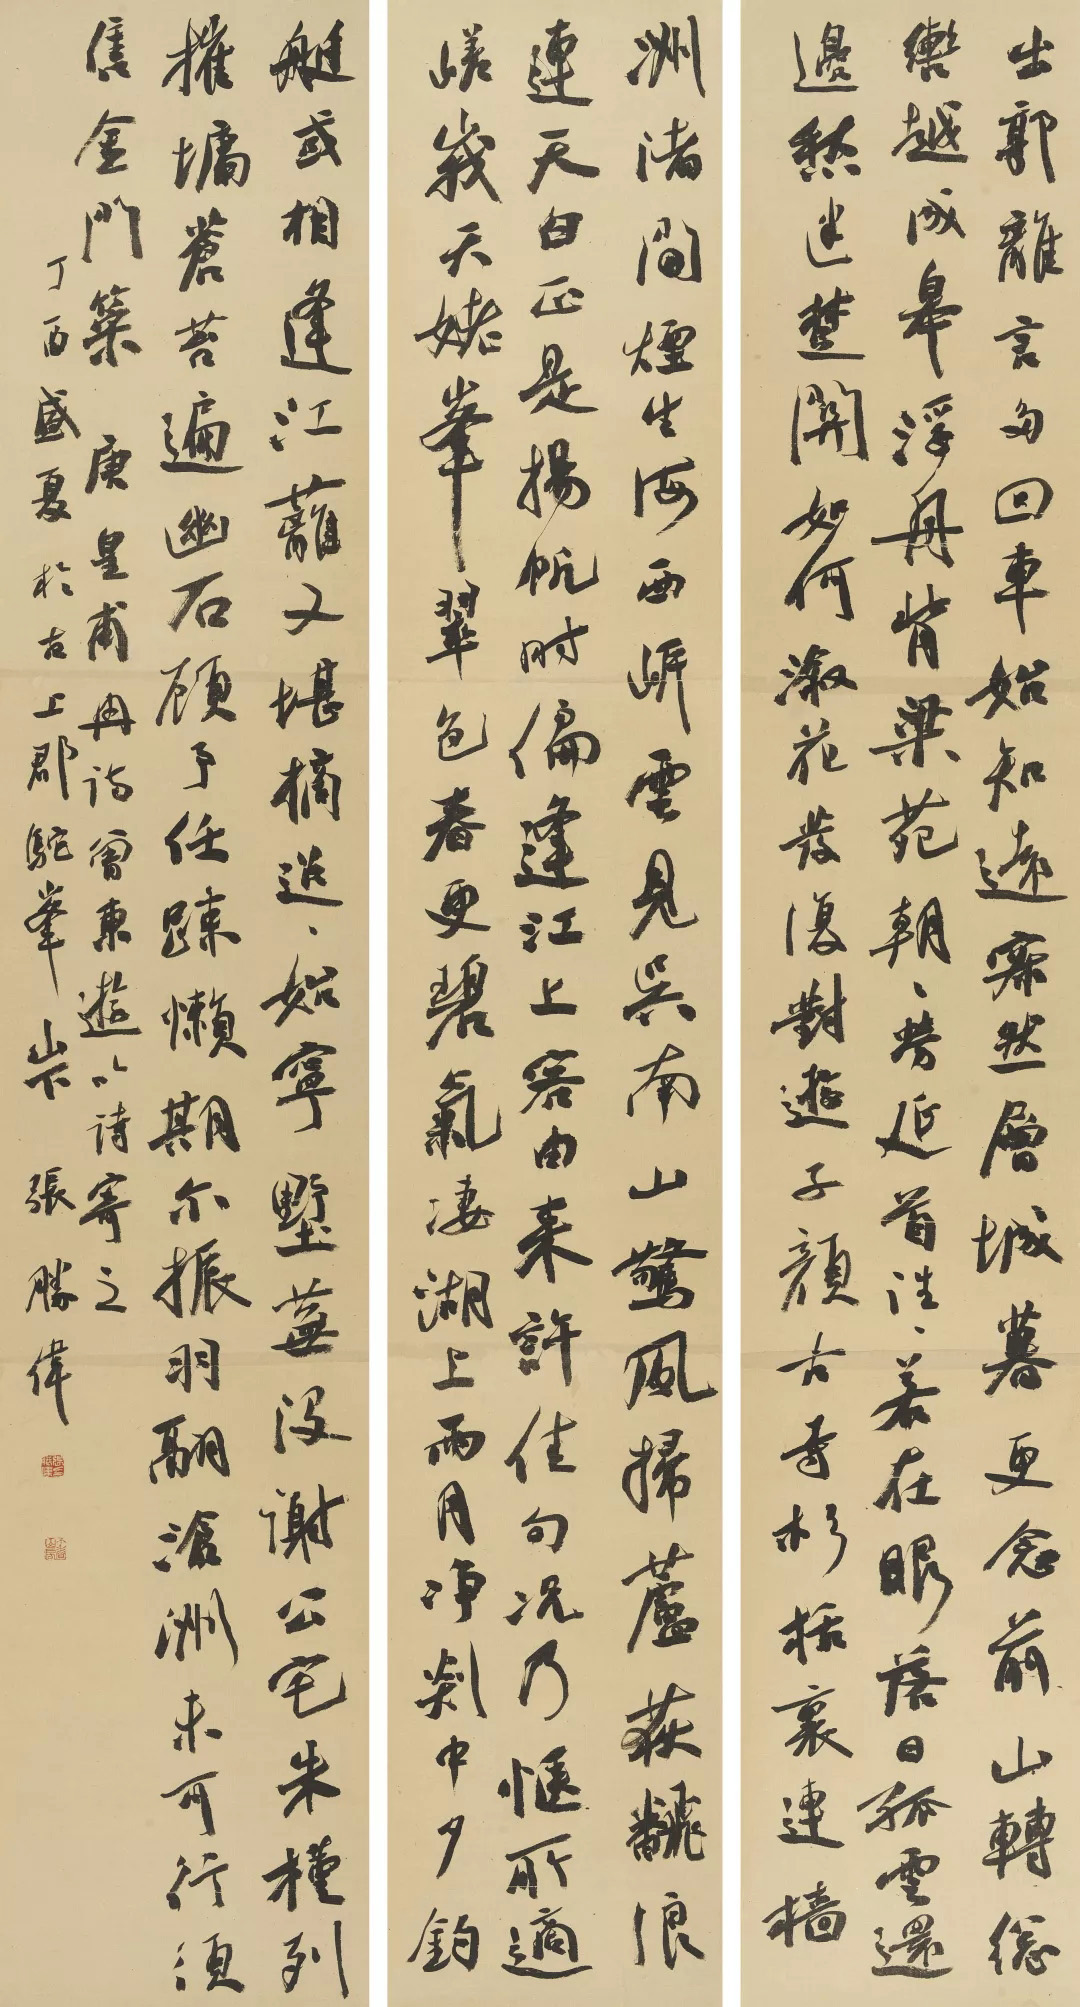 出郭離言多回車始知遠寂然層城暮更念前山轉總
轡越成皋浮舟背梁苑朝、勞延首往、若在眼落日孤雲還
邊愁迷楚關如何潊花發復對遊子顏古寺杉栝裏連檣
洲渚間煙生海西岸雲見吳南山驚風掃蘆荻翻浪
連天白正是揚帆时偏逢江上客由来許佳句况乃愜所適
嵯峨天姥峯翠色春更碧氣淒湖上雨月净剡中夕釣
艇或相逢江蘺又堪摘迢、始寧墅蕪没謝公宅朱槿列
摧墉蒼苔遍幽石顾予任疎懒期尔振羽翮滄洲未可行须
售金門策 唐皇甫冉诗曾東遊以诗寄之
丁酉盛夏於古上郡駝峯山下張勝偉